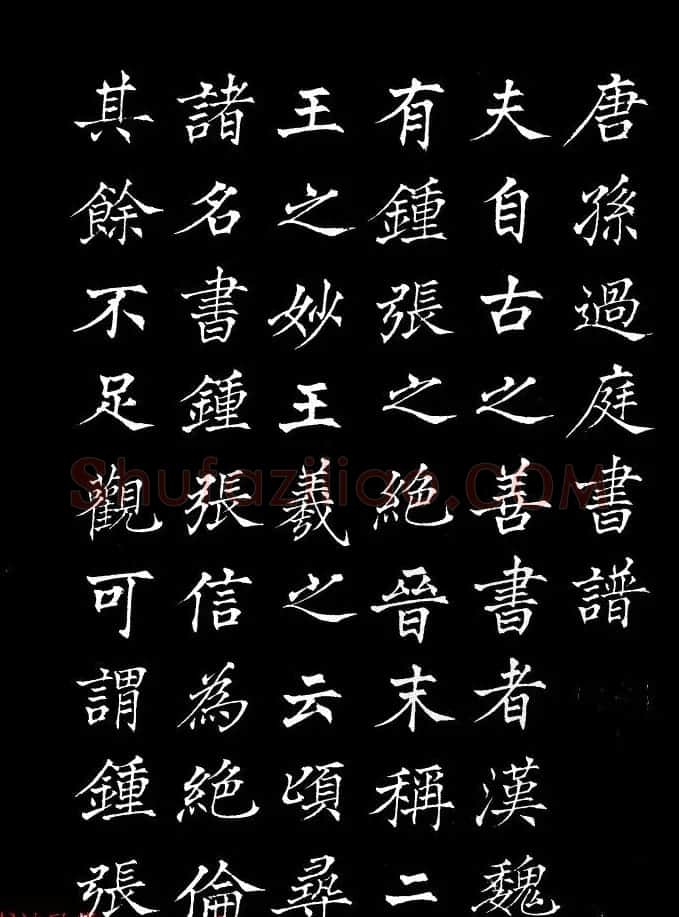 唐孫過庭書譜
夫自古之善書者漢魏
有鍾張之絕晉末稱二
王之妙王羲之云頃尋
諸名書鍾張信為絕倫
其餘不足觀可謂鍾張
Shufaziliao.COM